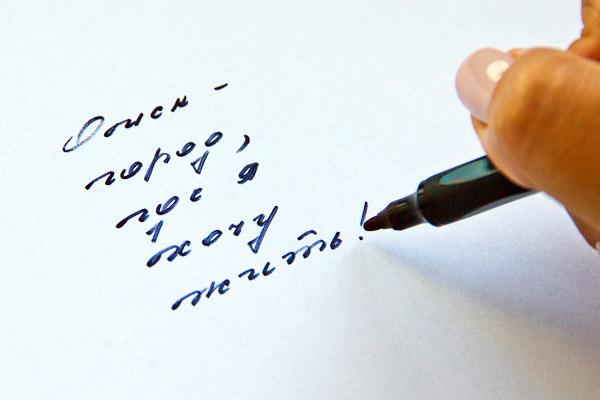 Омск -
город,
где я
хочу
жить!